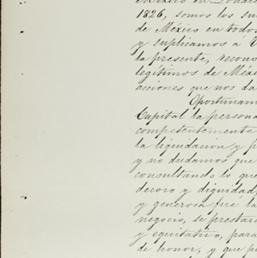 México en Londres
1826, somos los su
de México en todos
y suplicamos a V
la presente, recono
legítimos de Mexi
acciones que nos da
Oportunam
Capital la persona
competentemente
la liquidacion y p
y no dudamos que
consultando lo que
decoro y dignidad,
y generosa fué la
negocio, se prestará
y equitativo, para
de honor, y que p